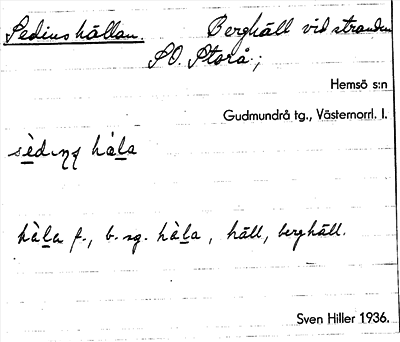 Sedinshällan. Berghäll vid stranden
SO. Storå.;
Hemsö s:n
Gudmundrå tg., Västernorrl. l.
hà̱la
hà̱la f., b. sg. hà̱la, häll, berghäll.
Sven Hiller 1936.